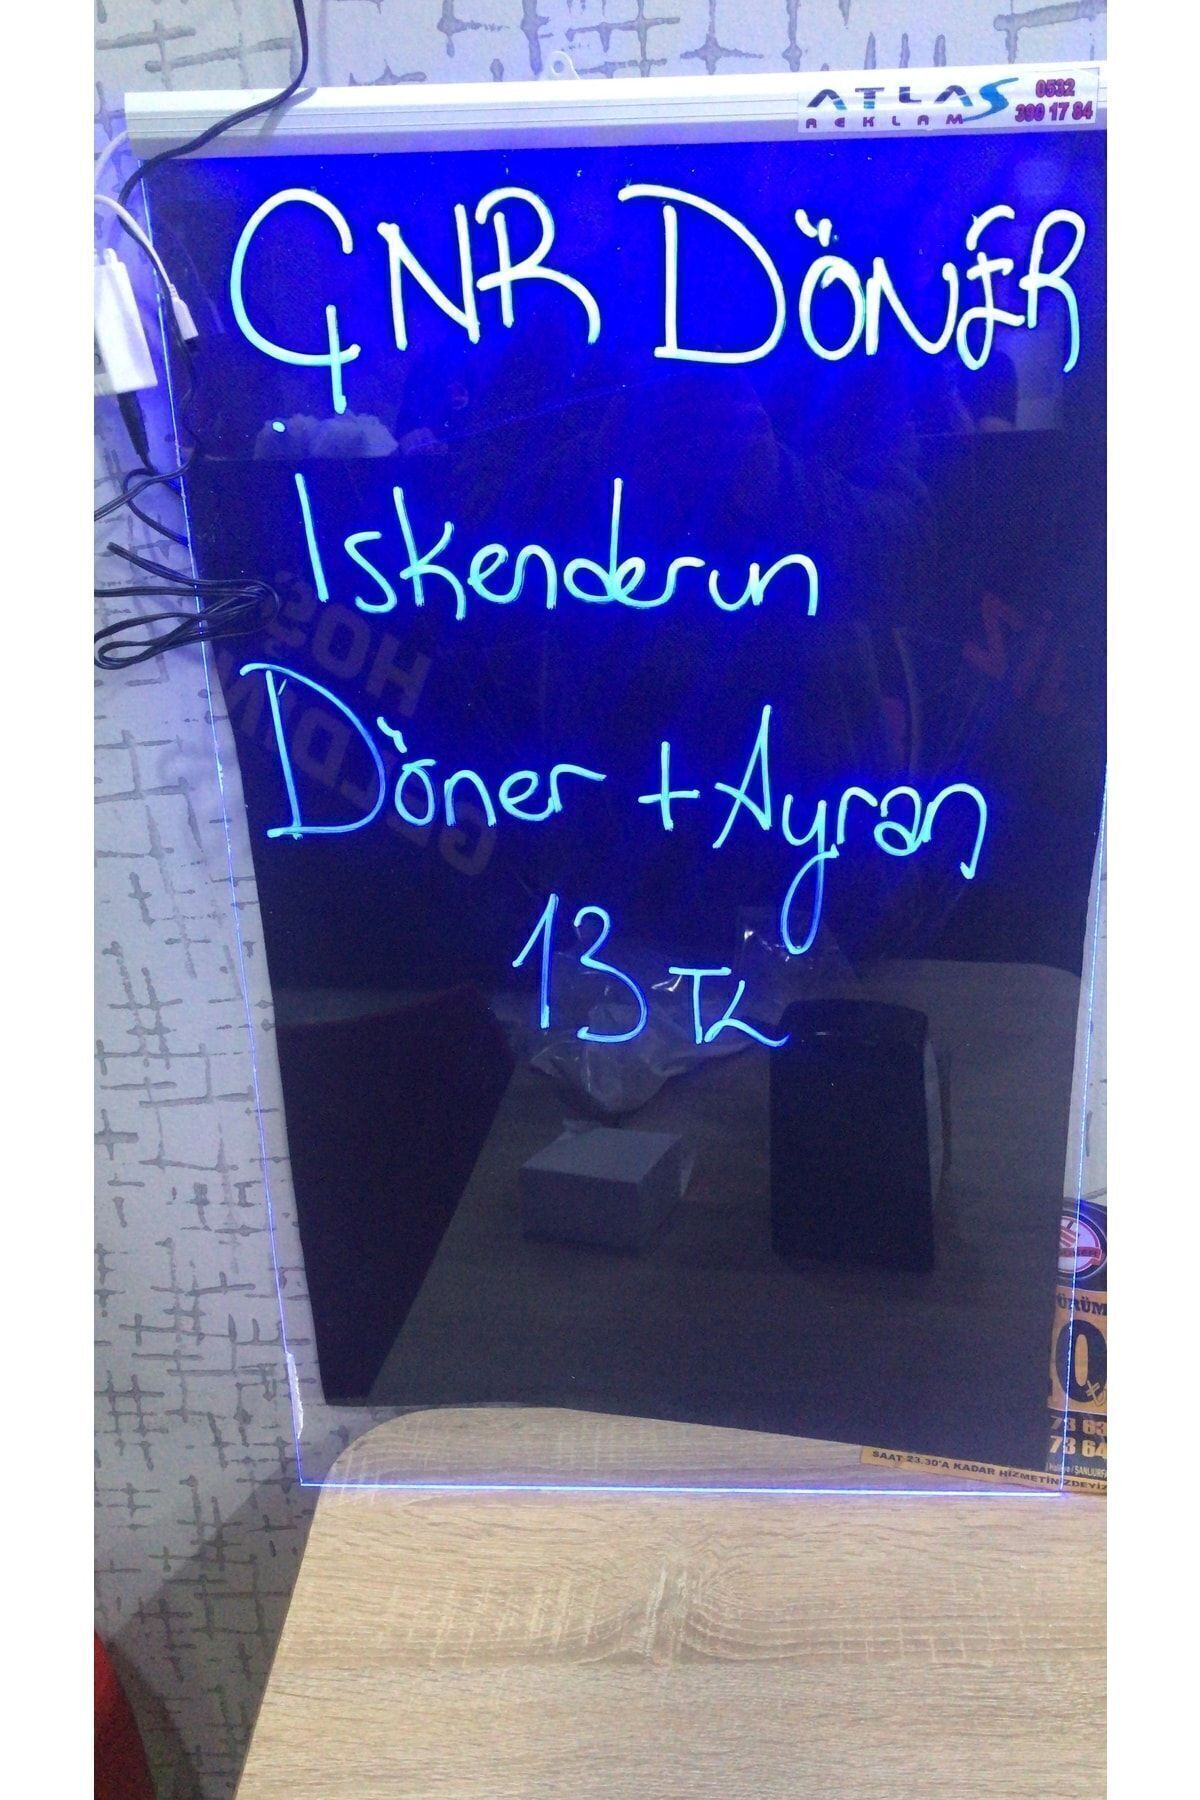 ATLAS
REKLAM
0532
390 17 84
ÇNR DÖNER
İskenderun
Döner + Ayran
13 TL
HOŞ
GELDİNİZ
ÜRÜM
73 63
73 64
SAAT 23.30'A KADAR HİZMETİNİZDEYİZ